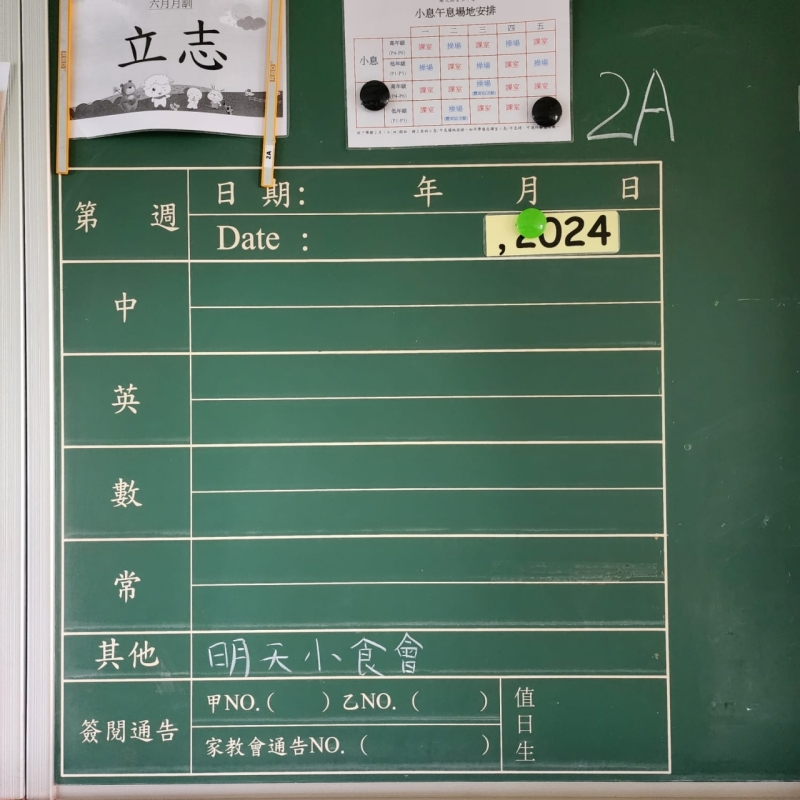 六月月訓
立志
小息午息場地安排
一 二 三 四 五
小息
高年級 課室 操場 課室 操場 課室
(P4-P6)
低年級 操場 課室 操場 課室 操場
高年級 課室 課室 操場 課室 課室
低年級 課室 操場 課室 課室 課室
2A
2A
第 週
日 期: 年 月 日
Date : , 2024
中
英
數
常
其他
明天小食會
簽閱通告
甲NO.( ) 乙NO. ( )
家教會通告NO. ( )
值日生